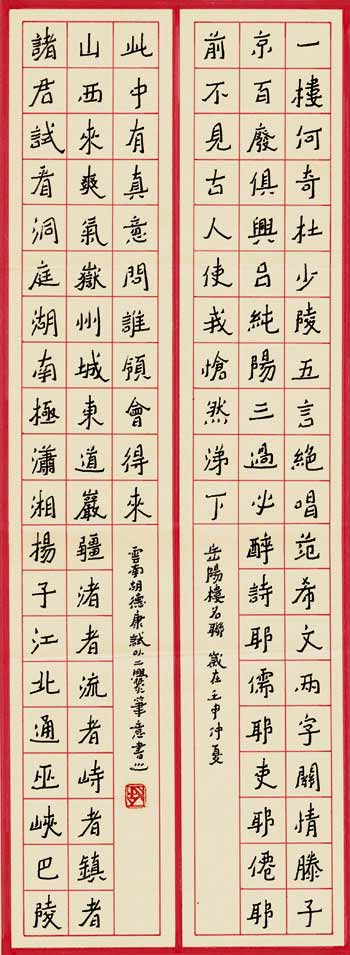 一樓何奇杜少陵五言絕唱范希文兩字關情滕子
京百廢俱興呂純陽三過必醉詩耶儒耶吏耶僊耶
前不見古人使我愴然涕下
岳陽樓名聯 歲在壬申仲夏
諸君試看洞庭湖南極瀟湘揚子江北通巫峽巴陵
山西來爽氣嶽州城東道巖疆渚者流者峙者鎮者
此中有真意問誰領會得來
雲南胡德康試以二爨筆意書